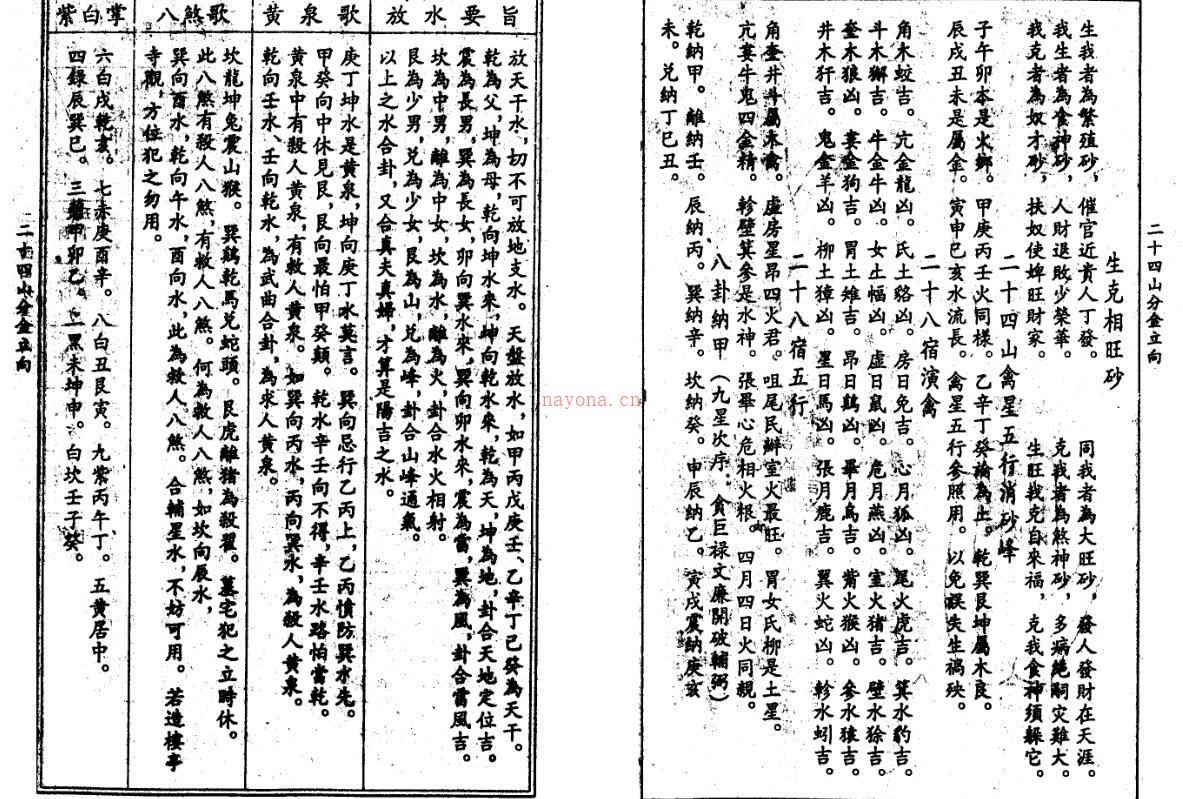 二十四山分金立向
生克相旺砂
生我者為繁殖砂，催官近貴人丁發。　同我者為大旺砂，發人發財在天涯。
我生者為食神砂，人財退敗少榮華。　克我者為煞神砂，多病絕嗣灾難大。
我克者為奴才砂，扶奴使婢旺財家。　生旺我克自來福，克我食神須躲它。
二十四山禽星五行消砂峰
子午卯本是火鄉。甲庚丙壬火同樣。乙辛丁癸論為土。乾巽艮坤屬木良。
辰戌丑未是屬金。寅申巳亥水流長。禽星五行參照用。以免誤失生禍殃。
二十八宿演禽
角木蛟吉。亢金龍凶。氐土貉凶。房日兔吉。心月狐凶。尾火虎吉。箕水豹吉。
斗木獬吉。牛金牛凶。女土蝠凶。虛日鼠凶。危月燕凶。室火猪吉。壁水狳吉。
奎木狼凶。婁金狗吉。胃土雉吉。昴日鷄凶。畢月烏吉。觜火猴凶。參水猿吉。
井木犴吉。鬼金羊凶。柳土獐凶。星日馬凶。張月鹿吉。翼火蛇凶。軫水蚓吉。
二十八宿五行
角奎井斗屬木禽。虛房星昴四火君。咀尾氏辦室火最旺。胃女氏柳是土星。
亢婁牛鬼四金精。軫壁箕參是水神。張畢心危相火根。四月四日火同親。
八卦納甲（九星次序：貪巨禄文廉開破輔弼）
乾納甲。離納壬。辰納丙。巽納辛。坎納癸。申辰納乙。寅戌震納庚亥
未。兑納丁巳丑。
放水要旨
放天干水，切不可放地支水。天盤放水，如甲丙戊庚壬、乙辛丁已癸為天干。
乾為父，坤為母，乾向坤水來，坤向乾水來，乾為天，坤為地，卦合天地定位吉。
震為長男，巽為長女，卯向巽水來，巽向卯水來，震為雷，巽為風，卦合雷風吉。
坎為中男，離為中女，坎為水，離為火，卦合水火相射。
艮為少男，兑為少女，艮為山，兑為峰，卦合山峰通氣。
以上之水合卦，又合真夫真婦，才算是陽吉之水。
黄泉歌
庚丁坤水是黄泉，坤向庚丁水莫言。巽向忌行乙丙上，乙丙憤防巽水先。
甲癸向中休見艮，艮向最怕甲癸顛。乾水辛壬向不得，辛壬水路怕當乾。
黄泉中有殺人黄泉，有救人黄泉。如巽向丙水，丙向巽水，為殺人黄泉。
乾向壬水、壬向乾水，為武曲合卦，為求人黄泉。
八煞歌
坎龍坤兔震山猴。巽鷄乾馬兑蛇頭。艮虎離猪為殺翟。墓宅犯之立時休。
此八煞有殺人八煞，有救人八煞。何為救人八煞，如坎向辰水，
巽向酉水，乾向午水，酉向水，此為救人八煞。合輔星水，不妨可用。若造樓亭
寺觀，方位犯之勿用。
紫白掌
六白戌乾亥。七赤庚酉辛。八白丑艮寅。九紫丙午丁。五黄居中。
四錄辰巽巳。三甲卯乙。二黑未坤申。白坎壬子癸。
二十四山分金立向
nayona.cn